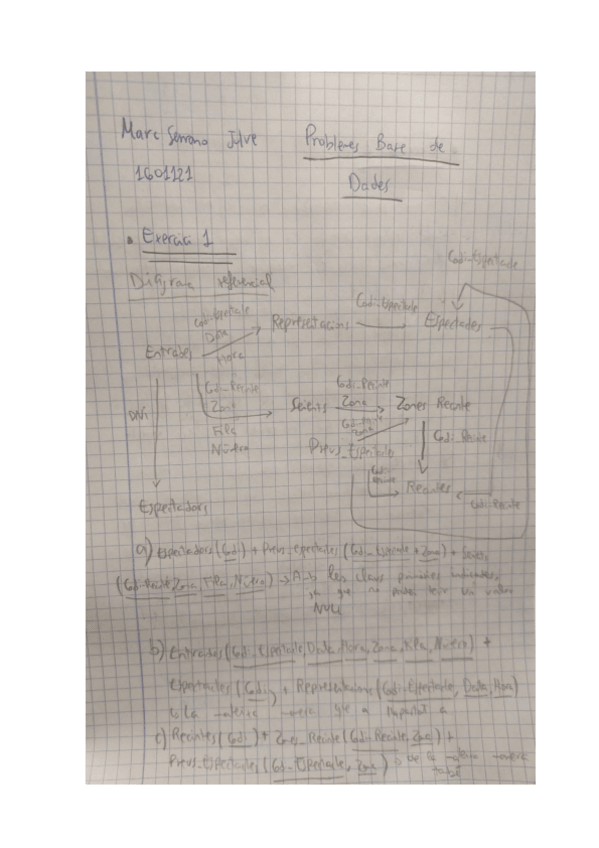 Marc Serrano Julve Problemes Base de
1601121 Dades
• Exercici 1
Diagrama referencial
Codi-Espectacle
Codi-Espectacle
Codi-Espectacle
Data
Representacions
Espectacles
Entrades
Hora
DNI
Codi-Recinte
Zona
Fila
Número
Seients
Codi-Recinte
Zona
Zones Recinte
Codi-Recinte
Zona
Preus_Espectacle
Codi-Recinte
Codi-Recinte
Recintes
Codi-Recinte
Espectadors
a) Espectadors (Codi) + Preus_espectacles (Codi_Espectacle + Zona) + Seients
(Codi-Recinte, Zona, Fila, Número) → Amb les claus primàries indicades,
ja que no poden tenir un valor
NULL
b) Entrades (Codi_Espectacle, Data, Hora, Zona, Fila, Número) +
Espectacles (Codi) + Representacions (Codi-Espectacle, Data, Hora)
la mateixa manera que a l'apartat a
c) Recintes (Codi) + Zones_Recinte (Codi-Recinte, Zona) +
Preus_Espectacles (Codi_Espectacle, Zona) → De la mateixa manera
també